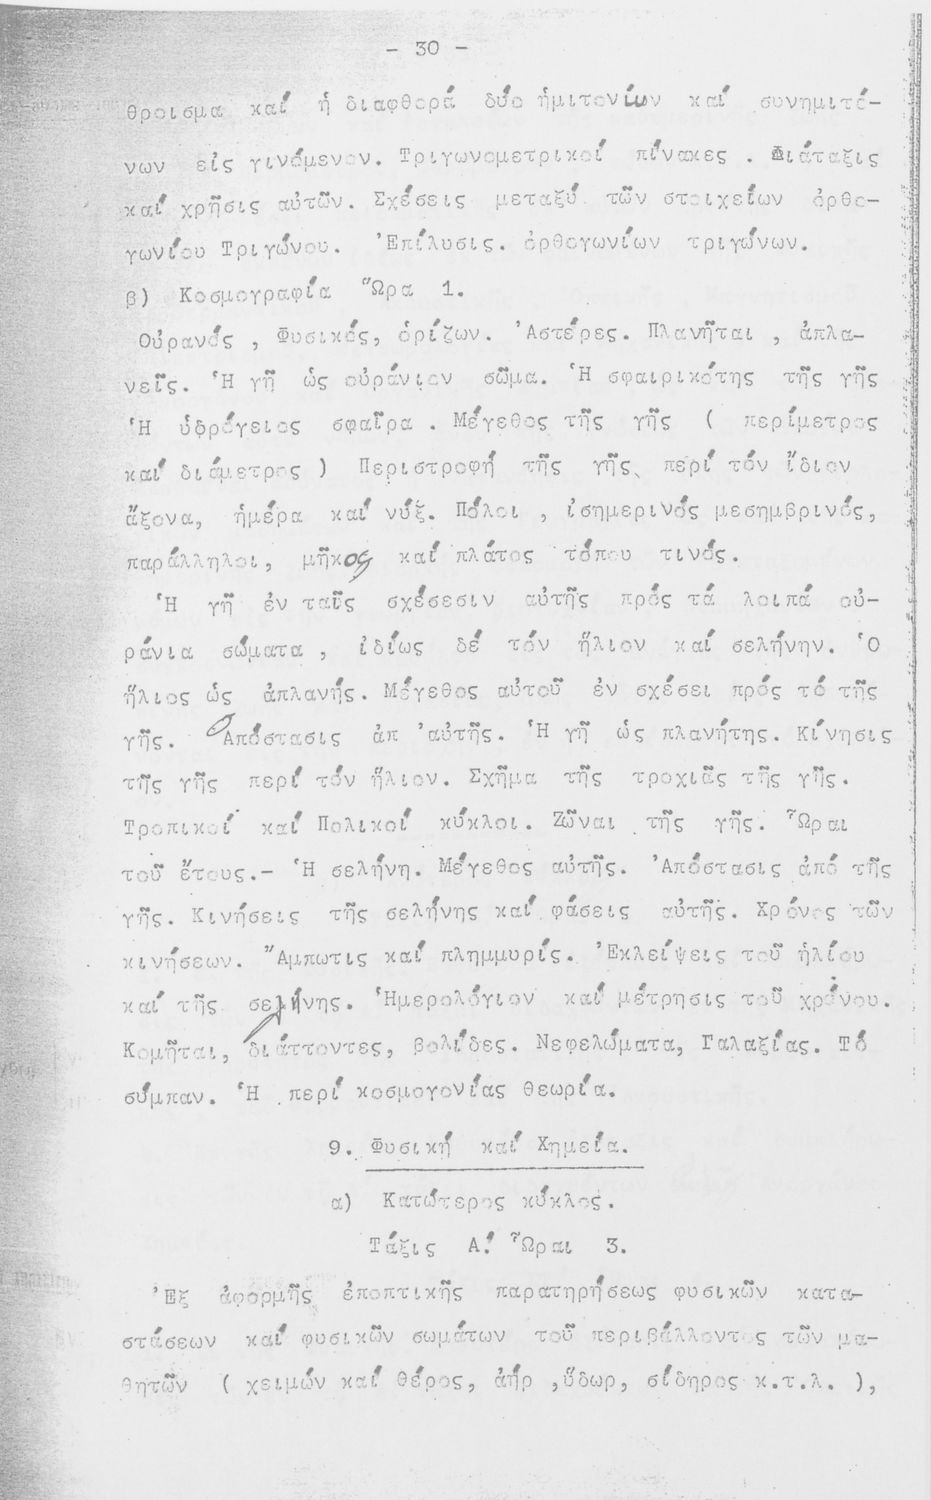 - 30 -
θροισμα καί ἡ διαφθορά δύο ἡμιτονίων καί συνημιτό-
νων εἰς γινόμενον. Τριγωνομετρικοί πίνακες . Διάταξις
καί χρῆσις αὐτῶν. Σχέσεις μεταξύ τῶν στοιχείων ὀρθο-
γωνίου Τριγώνου. Ἐπίλυσις. ὀρθογωνίων τριγώνων.
β) Κοσμογραφία Ὥρα 1.
Οὐρανός , Φυσικός, ὁρίζων. Ἀστέρες. Πλανῆται , ἀπλα-
νεῖς. Ἡ γῆ ὡς οὐράνιον σῶμα. Ἡ σφαιρικότης τῆς γῆς
Ἡ ὑδρόγειος σφαῖρα . Μέγεθος τῆς γῆς ( περίμετρος
καί διάμετρος ) Περιστροφή τῆς γῆς περί τόν ἴδιον
ἄξονα, ἡμέρα καί νύξ. Πόλοι , ἰσημερινός μεσημβρινός,
παράλληλοι, μῆκος καί πλάτος τόπου τινός.
Ἡ γῆ ἐν ταῖς σχέσεσιν αὐτῆς πρός τά λοιπά οὐ-
ράνια σώματα , ἰδίως δέ τόν ἥλιον καί σελήνην. Ὁ
ἥλιος ὡς ἀπλανής. Μέγεθος αὐτοῦ ἐν σχέσει πρός τό τῆς
γῆς. Ἀπόστασις ἀπ 'αὐτῆς. Ἡ γῆ ὡς πλανήτης. Κίνησις
τῆς γῆς περί τόν ἥλιον. Σχῆμα τῆς τροχιᾶς τῆς γῆς.
Τροπικοί καί Πολικοί κύκλοι. Ζῶναι τῆς γῆς. Ὧραι
τοῦ ἔτους.- Ἡ σελήνη. Μέγεθος αὐτῆς. Ἀπόστασις ἀπό τῆς
γῆς. Κινήσεις τῆς σελήνης καί φάσεις αὐτῆς. Χρόνος τῶν
κινήσεων. Ἄμπωτις καί πλημμυρίς. Ἐκλείψεις τοῦ ἡλίου
καί τῆς σελήνης. Ἡμερολόγιον καί μέτρησις τοῦ χρόνου.
Κομῆται, διάττοντες, βολίδες. Νεφελώματα, Γαλαξίας. Τό
σύμπαν. Ἡ περί κοσμογονίας θεωρία.
9. Φυσική καί Χημεία.
α) Κατώτερος κύκλος.
Τάξις Α΄ Ὧραι 3.
Ἐξ ἀφορμῆς ἐποπτικῆς παρατηρήσεως φυσικῶν κατα-
στάσεων καί φυσικῶν σωμάτων τοῦ περιβάλλοντος τῶν μα-
θητῶν ( χειμών καί θέρος, ἀήρ ,ὕδωρ, σίδηρος κ.τ.λ. ),